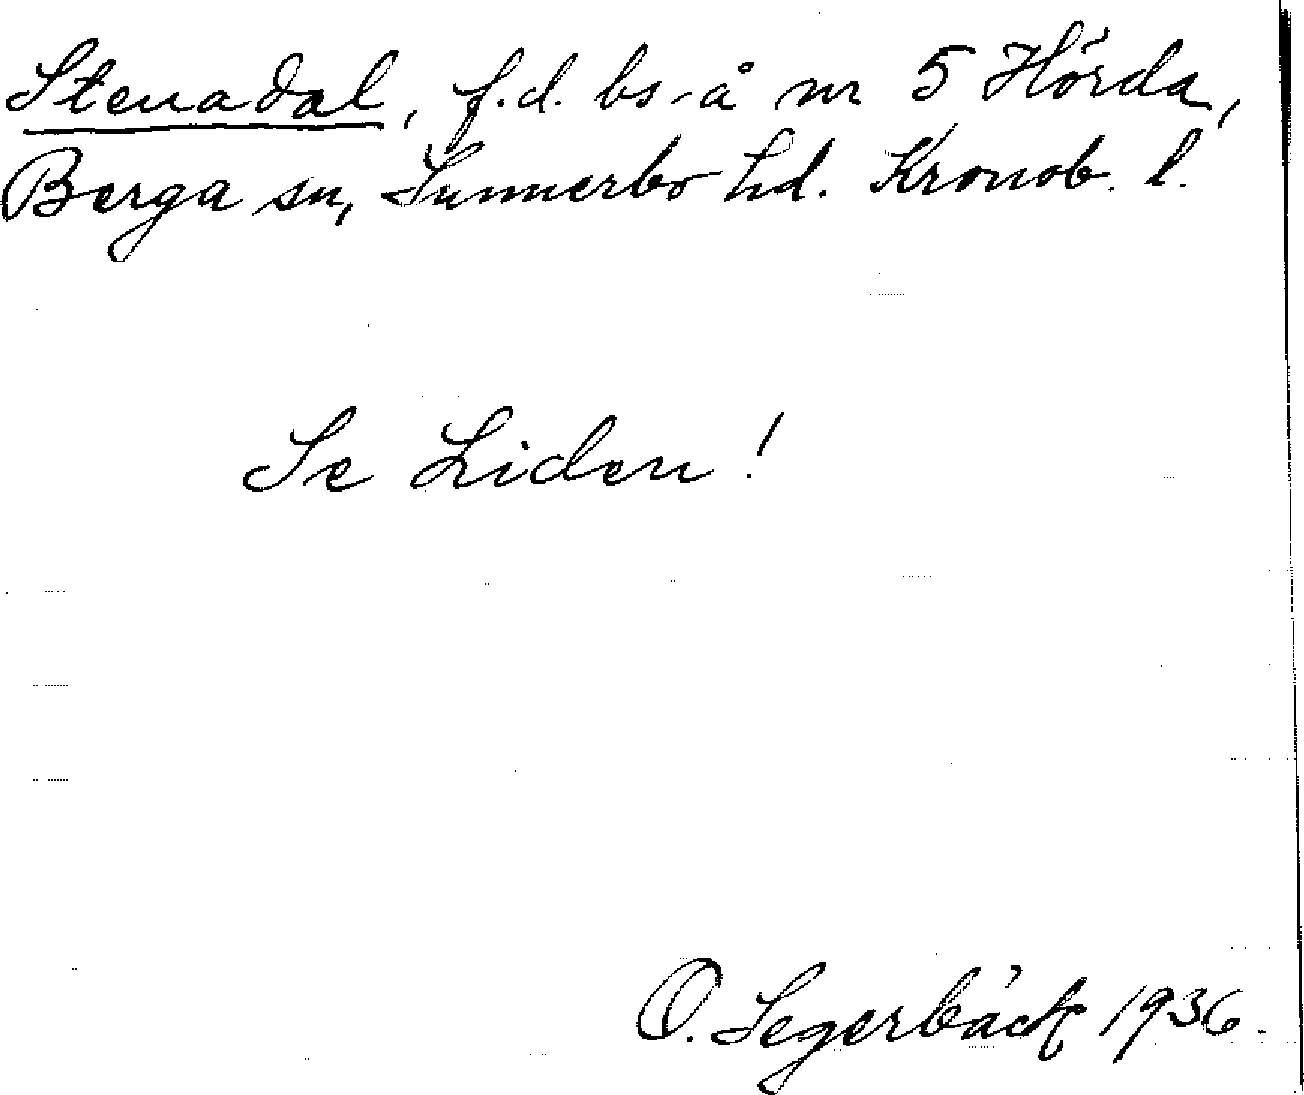 Stenadal, f.d. bs-å nr 5 Hörda,
Berga sn, Sunnerbo hd. Kronob. l.
Se Liden!
O. Segerbäck 1936.